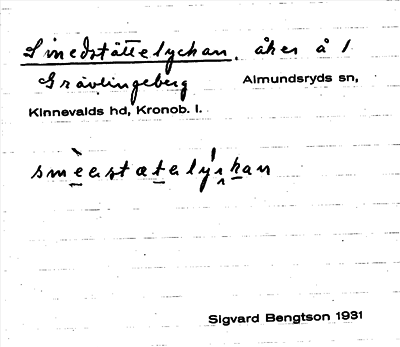 Smedstättelyckan, åker å 1
Grävlingeberg Almundsryds sn,
Kinnevalds hd, Kronob. l.
smèestætelýkan
Sigvard Bengtson 1931